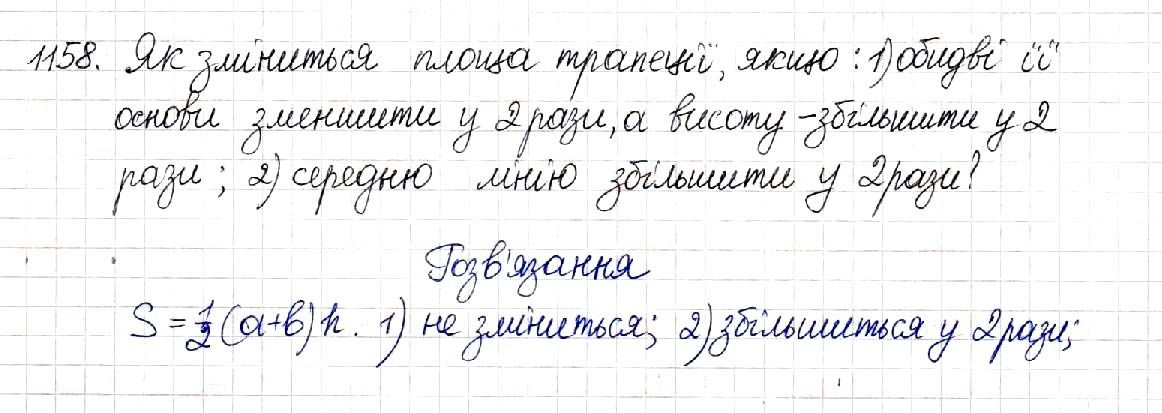 1158. Як зміниться площа трапеції, якщо: 1) обидві її
основи зменшити у 2 рази, а висоту - збільшити у 2
рази; 2) середню лінію збільшити у 2 рази?
Розв'язання
S = 1/2 (a+b) h. 1) не зміниться; 2) збільшиться у 2 рази;